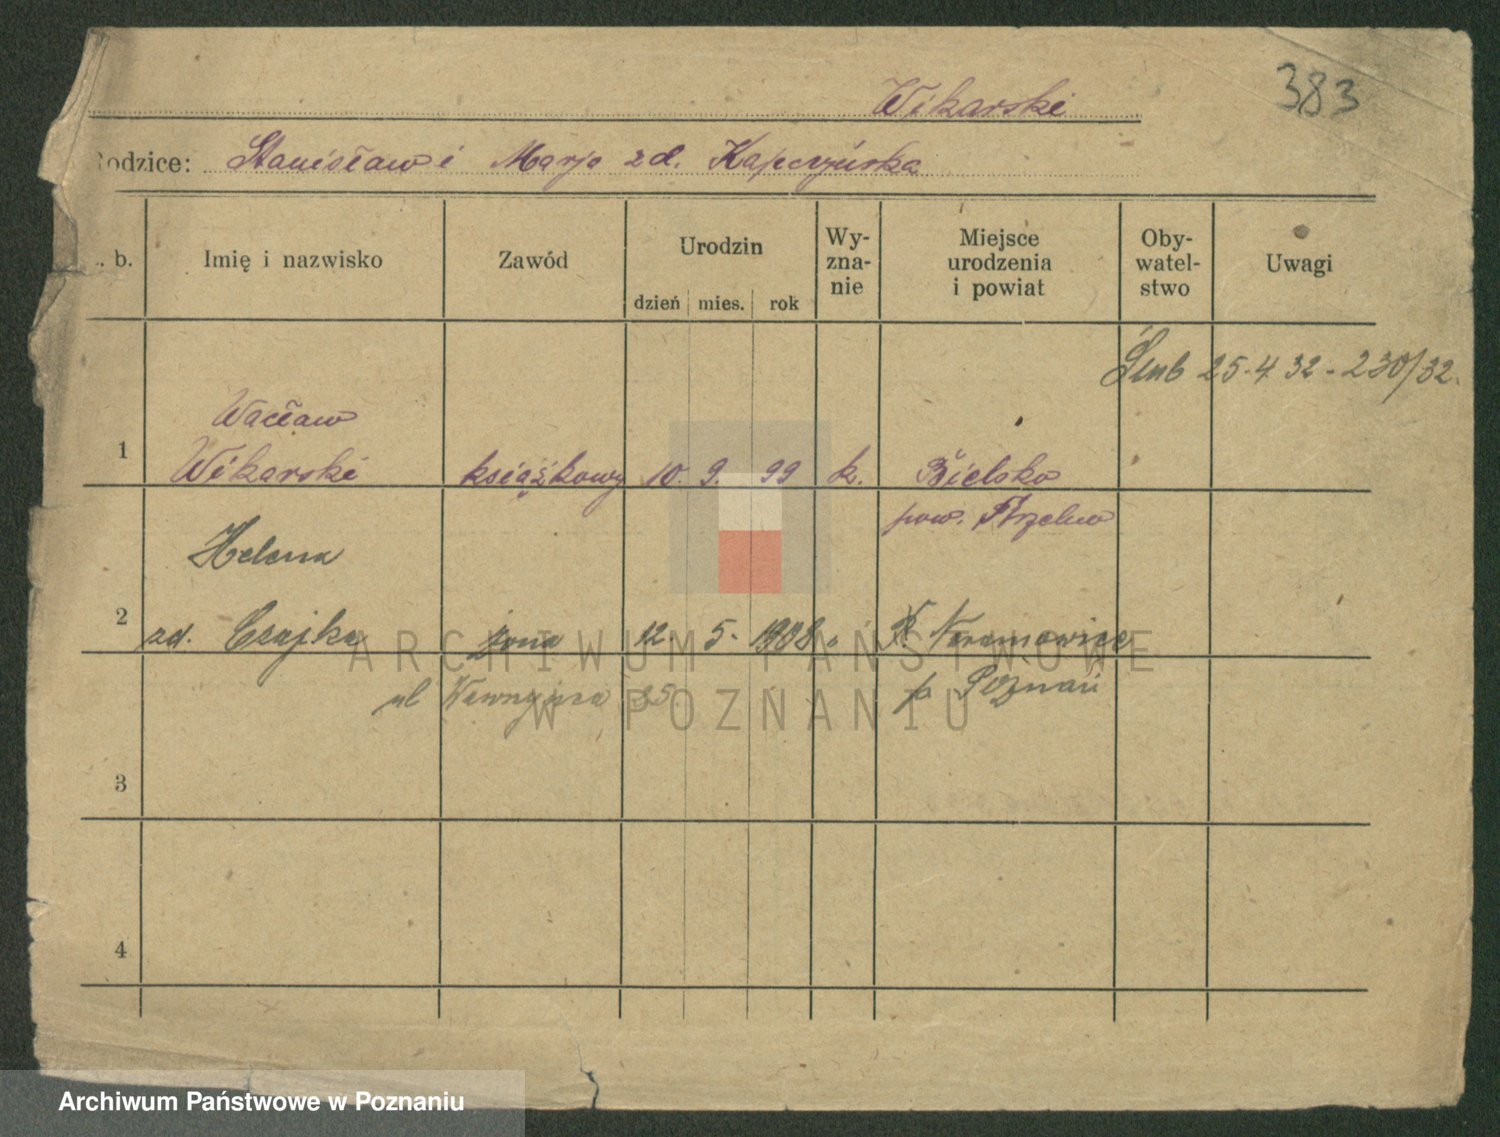 383
Wikarski
Rodzice: Stanisław i Marja zd. Kapczyńska
L. b.
Imię i nazwisko
Zawód
Urodzin
dzień mies. rok
Wy-
zna-
nie
Miejsce
urodzenia
i powiat
Oby-
watel-
stwo
Uwagi
Ślub 25.4 32 - 230/32.
Wacław
1 Wikarski książkowy 10. 9. 99 k. Bielsko
pow. Strzelno
Helena
2 zd. Czajka żona 12. 5. 1908 Naramowice
ul 25. p. Poznań
3
4
ARCHIWUM PAŃSTWOWE
W POZNANIU
Archiwum Państwowe w Poznaniu